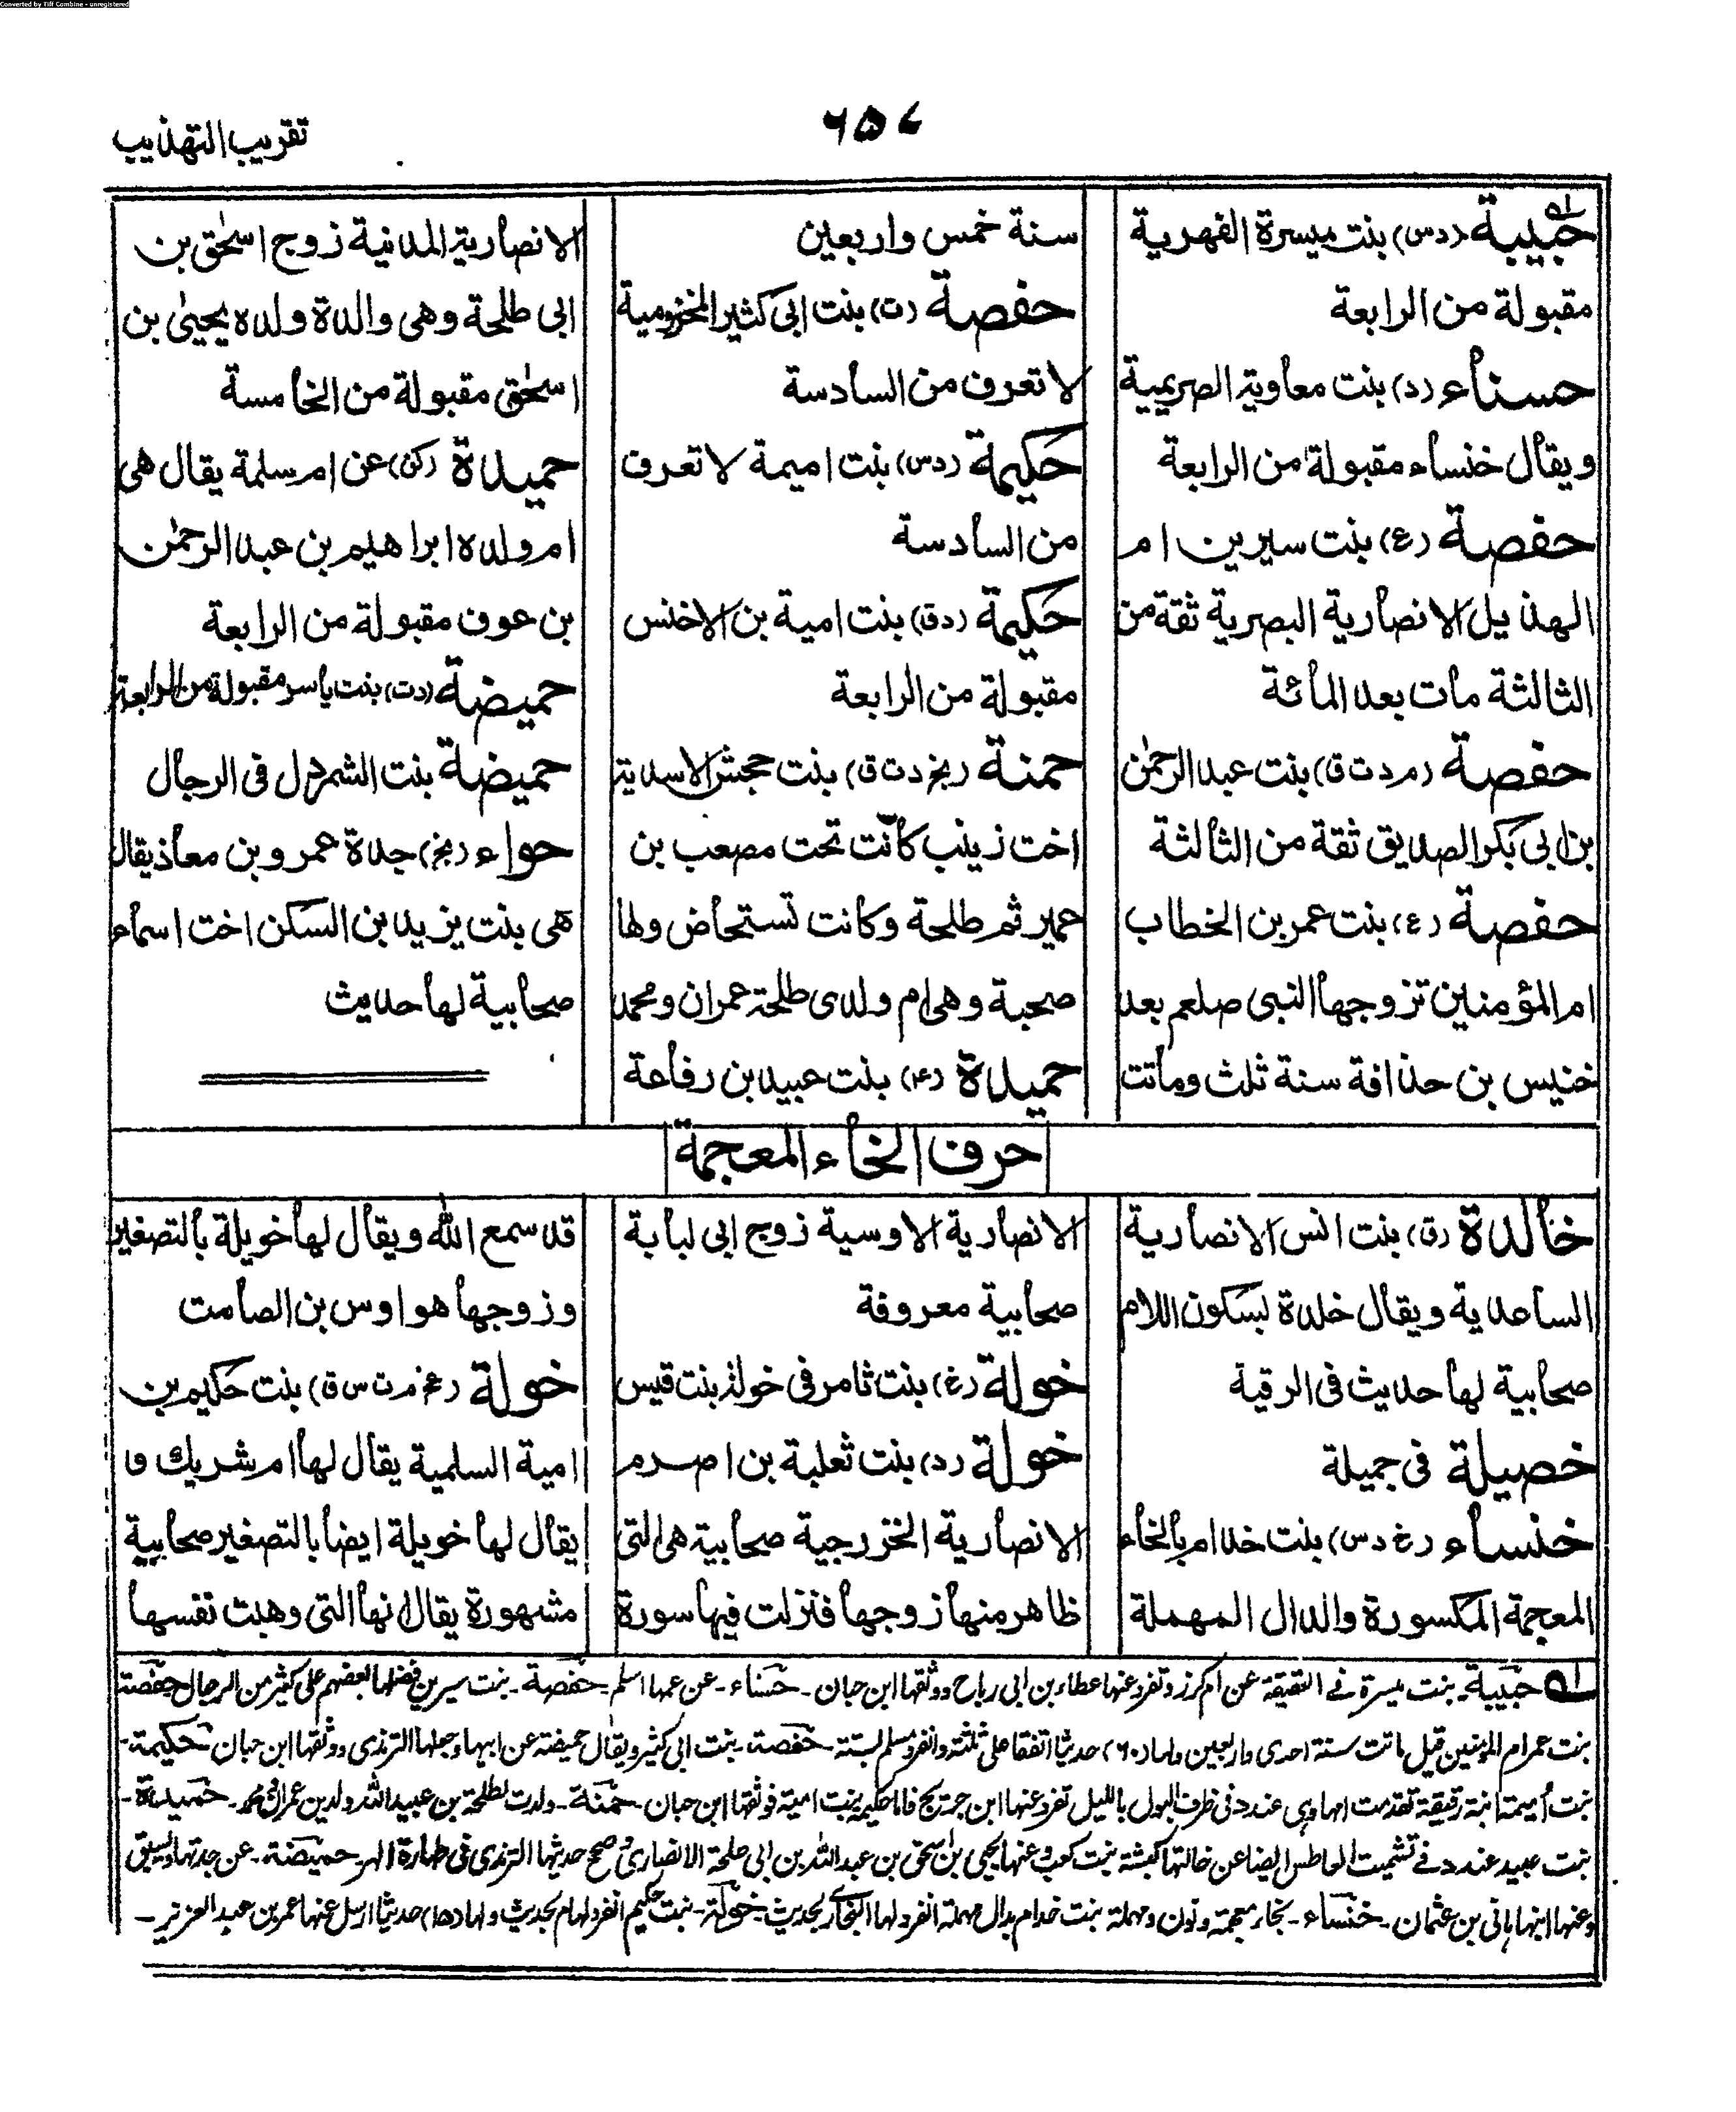 Converted by Tiff Combine - unregistered
٦٥٤
تقريب التهذيب
حبيبة (دس) بنت ميسرة الفهرية
مقبولة من الرابعة
حسناء (د) بنت معاوية الصريمية
ويقال خنساء مقبولة من الرابعة
حفصة (ع) بنت سيرين ام
الهذيل الانصارية البصرية ثقة من
الثالثة مات بعد المائة
حفصة (م د ت ق) بنت عبد الرحمٰن
بن ابى بكر الصديق ثقة من الثالثة
حفصة (ع) بنت عمر بن الخطاب
ام المؤمنين تزوجها النبى صلعم بعد
خنيس بن حذافة سنة ثلث وماتت
سنة خمس واربعين
حفصة (ت) بنت ابى كثير المخزومية
لا تعرف من السادسة
حكيمة (دس) بنت اميمة لا تعرف
من السادسة
حكيمة (دق) بنت امية بن الاخنس
مقبولة من الرابعة
حمنة (بخ د ت ق) بنت جحش الاسدية
اخت زينب كانت تحت مصعب بن
عمير ثم طلحة وكانت تستحاض ولها
صحبة وهى ام ولدى طلحة عمران ومحمد
حميدة (ع۴) بنت عبيد بن رفاعة
الانصارية المدنية زوج اسحٰق بن
ابى طلحة وهى والدة ولده يحيىٰ بن
اسحٰق مقبولة من الخامسة
حميدة (كن) عن ام سلمة يقال هى
ام ولده ابراهيم بن عبد الرحمٰن
بن عوف مقبولة من الرابعة
حميضة (دت) بنت ياسر مقبولة من الرابعة
حميضة بنت الشمردل فى الرجال
حواء (بخ) جدة عمرو بن معاذ يقال
هى بنت يزيد بن السكن اخت اسماء
صحابية لها حديث
حرف الخاء المعجمة
خالدة (ق) بنت انس الانصارية
الساعدية ويقال خلدة بسكون اللام
صحابية لها حديث فى الرقية
خصيلة فى جميلة
خنساء (خ د س) بنت خدام بالخاء
المعجمة المكسورة والدال المهملة
الانصارية الاوسية زوج ابى لبابة
صحابية معروفة
خولة (خ) بنت ثامر فى خولة بنت قيس
خولة (د) بنت ثعلبة بن اصرم
الانصارية الخزرجية صحابية هى التى
ظاهر منها زوجها فنزلت فيها سورة
قد سمع الله ويقال لها خويلة بالتصغير
وزوجها هو اوس بن الصامت
خولة (عخ م ت س ق) بنت حكيم بن
امية السلمية يقال لها ام شريك و
يقال لها خويلة ايضا بالتصغير صحابية
مشهورة يقال انها التى وهبت نفسها
حبيبة - بنت ميسرة فى العقيقة عن ام كرز وتفرد عنها عطاء بن ابى رباح ووثقها ابن حبان - حسناء - عن عمها اسلم - حفصة - بنت سيرين فضلها بعضهم على كثير من الرجال حفصة
بنت عمر ام المؤمنين قيل ماتت سنة احدى واربعين ولها (٦٠) حديثا اتفقا على ثلثة وانفرد مسلم بستة - حفصة - بنت ابى كثير ويقال حميضة عن ابيها وجهلها الترمذى ووثقها ابن حبان - حكيمة -
بنت أميمة ابنة رقيقة تقدمت امها وهى عند د فى ظرف البول بالليل تفرد عنها ابن جريج فاما حكيمة بنت امية فوثقها ابن حبان - حمنة - ولدت لطلحة بن عبيد الله ولدين عمران ومحمد - حميدة -
بنت عبيد عند د فى تشميت العاطس ايضا عن خالتها كبشة بنت كعب وعنها يحيى بن اسحٰق بن عبد الله بن ابى طلحة الانصارى وصحح حديثها الترمذى فى طهارة الهر - حميضة - عن جدتها يسيرة
وعنها ابنها هانى بن عثمان - خنساء - بخاء معجمة ونون ومهملة بنت خدام بدال مهملة انفرد لها البخارى بحديث - خولة - بنت حكيم انفرد لها م بحديث ولها (١٥) حديثا ارسل عنها عمر بن عبد العزيز -